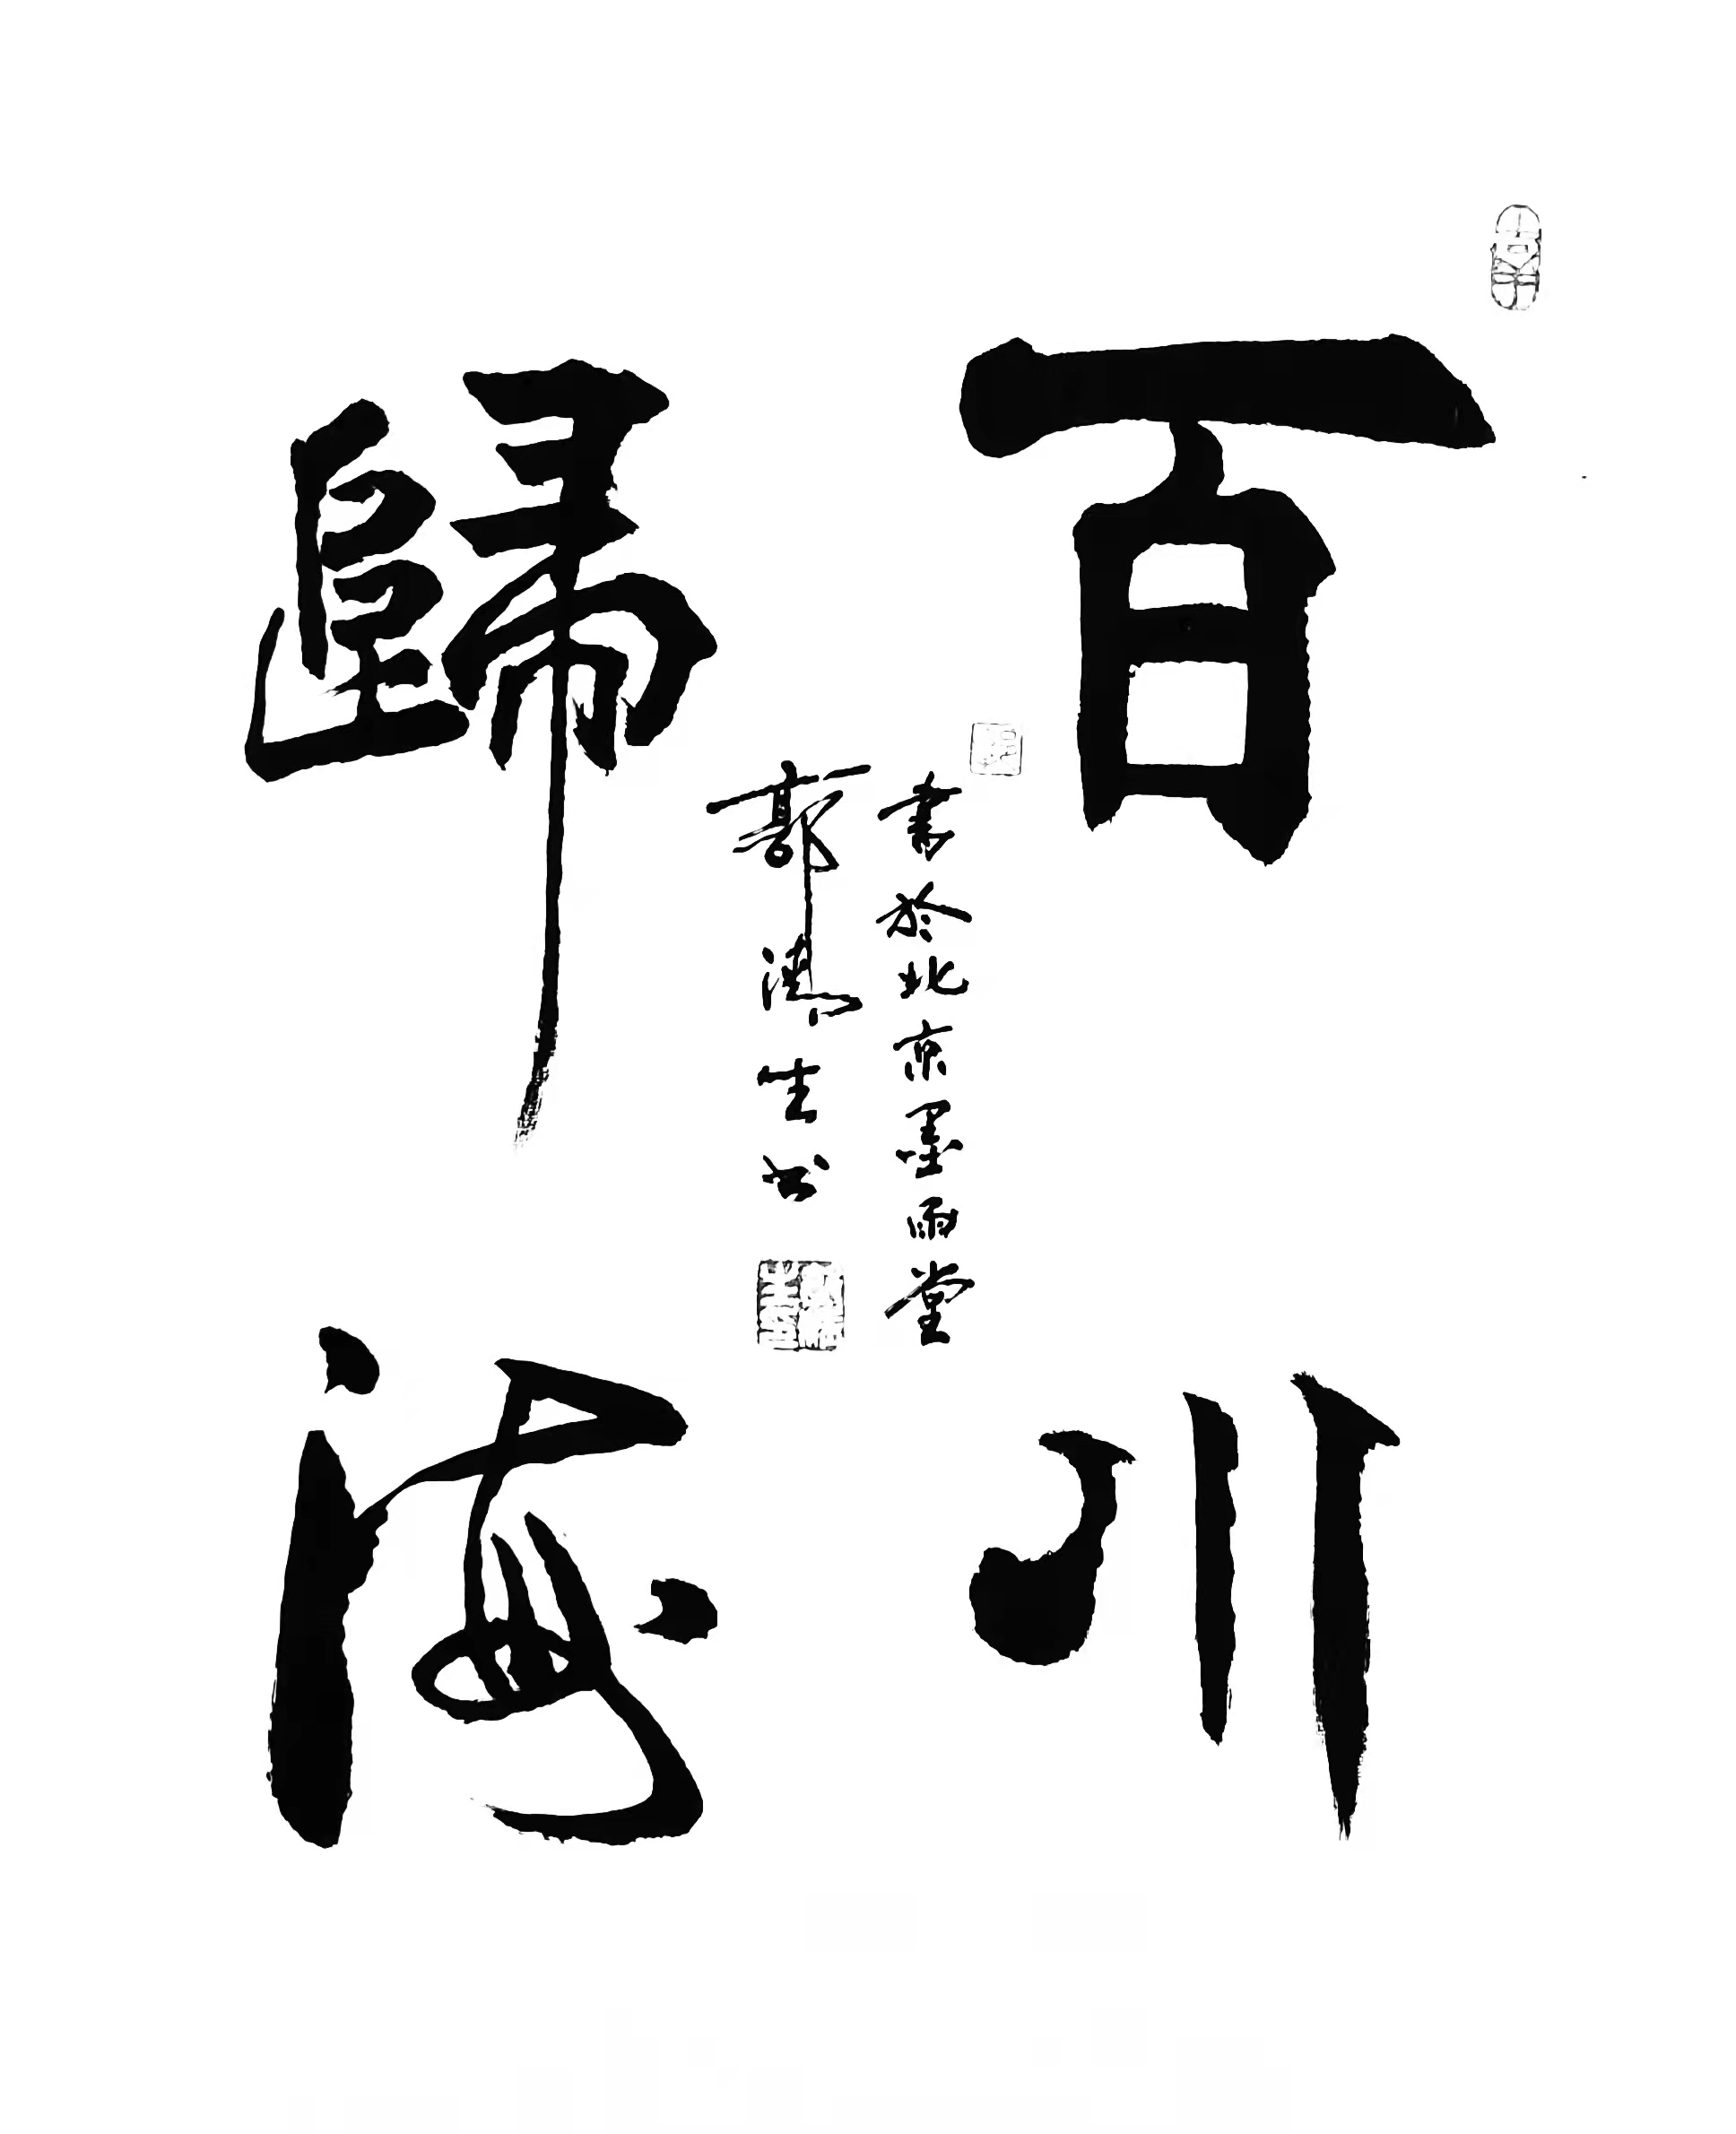 百川
歸海
書於北京墨雨堂
郭洪生書